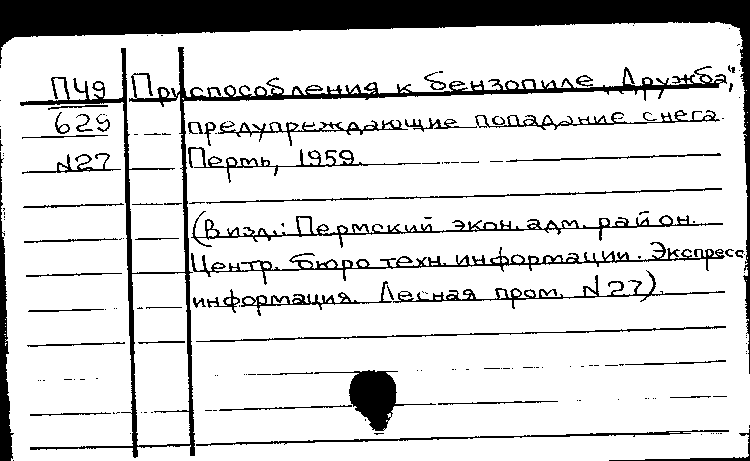 П49 Приспособления к бензопиле „Дружба",
629 предупреждающие попадание снега.
N27 Пермь, 1959.
(В изд.: Пермский экон. адм. район.
Центр. бюро техн. информации. Экспресс
информация. Лесная пром. N27).